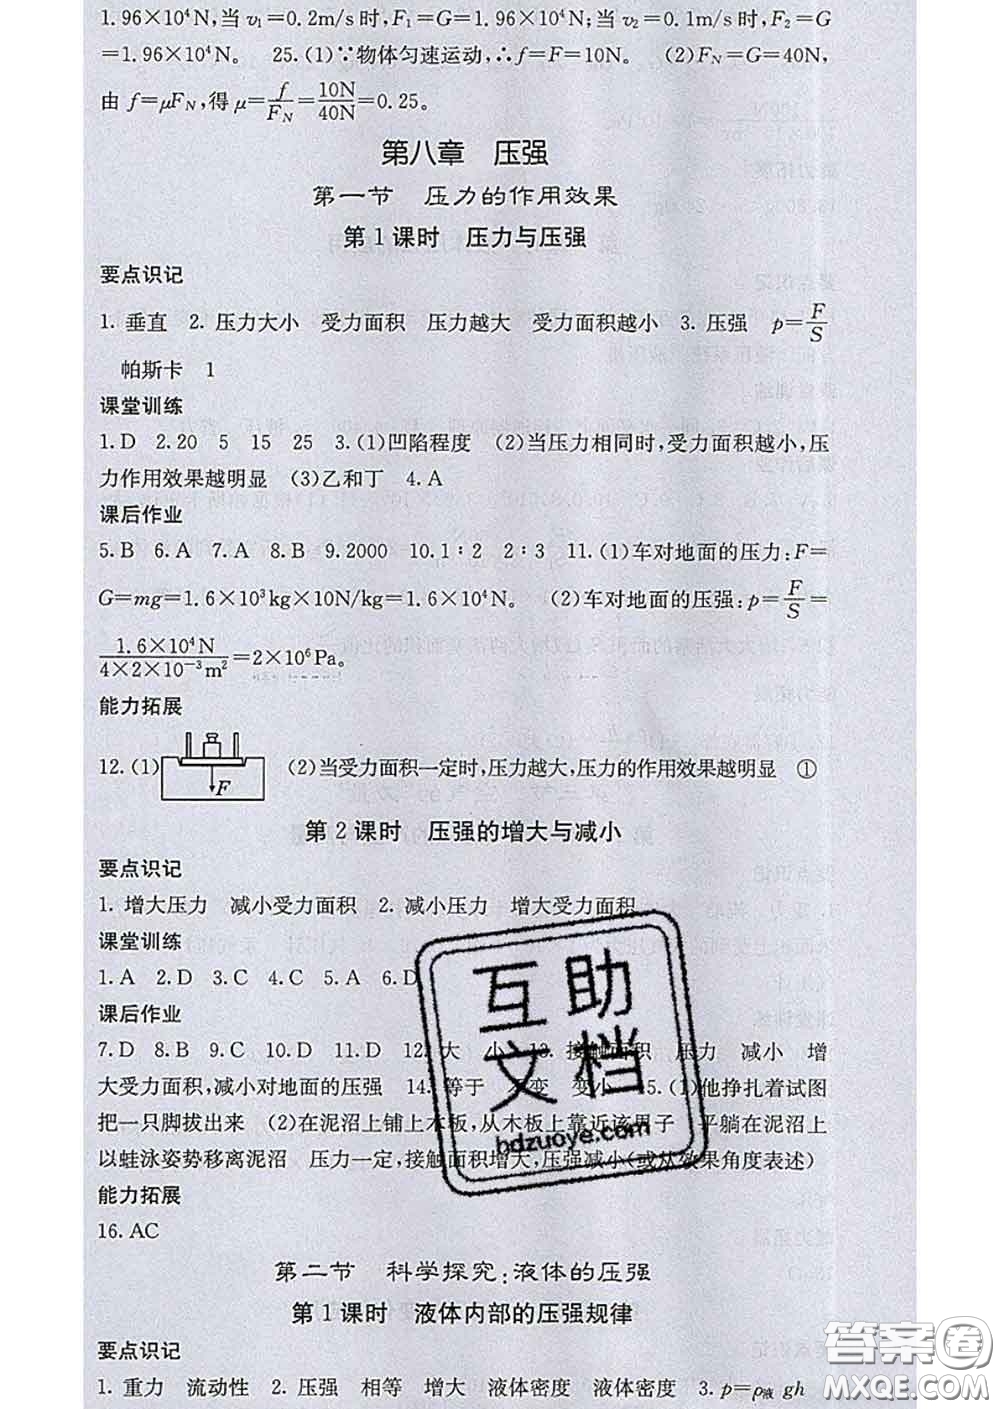 1.96×10⁴N,当 v₁=0.2m/s 时,F₁=G=1.96×10⁴N;当 v₂=0.1m/s 时,F₂=G
=1.96×10⁴N。 25.(1)∵物体匀速运动,∴f=F=10N。 (2)F_N=G=40N,
由 f=μF_N,得 μ=f/F_N=10N/40N=0.25。
第八章 压强
第一节 压力的作用效果
第1课时 压力与压强
要点识记
1. 垂直 2. 压力大小 受力面积 压力越大 受力面积越小 3. 压强 p=F/S
帕斯卡 1
课堂训练
1.D 2.20 5 15 25 3.(1)凹陷程度 (2)当压力相同时,受力面积越小,压
力作用效果越明显 (3)乙和丁 4.A
课后作业
5.B 6.A 7.A 8.B 9.2000 10.1∶2 2∶3 11.(1)车对地面的压力:F=
G=mg=1.6×10³kg×10N/kg=1.6×10⁴N。 (2)车对地面的压强:p=F/S=
1.6×10⁴N/4×2×10⁻³m²=2×10⁶Pa。
能力拓展
12.(1) F (2)当受力面积一定时,压力越大,压力的作用效果越明显 ①
第2课时 压强的增大与减小
要点识记
1. 增大压力 减小受力面积 2. 减小压力 增大受力面积
课堂训练
1.A 2.D 3.C 4.C 5.A 6.D
课后作业
7.D 8.B 9.C 10.D 11.D 12.大 小 13. 接触面积 压力 减小 增
大受力面积,减小对地面的压强 14. 等于 不变 变小 15.(1)他挣扎着试图
把一只脚拔出来 (2)在泥沼上铺上木板,从木板上靠近该男子 平躺在泥沼上
以蛙泳姿势移离泥沼 压力一定,接触面积增大,压强减小(或从效果角度表述)
能力拓展
16. AC
第二节 科学探究:液体的压强
第1课时 液体内部的压强规律
要点识记
1. 重力 流动性 2. 压强 相等 增大 液体密度 液体密度 3. p=ρ液 gh
互助
文档
hdzuoye.com
答案圈
MXQE.COM